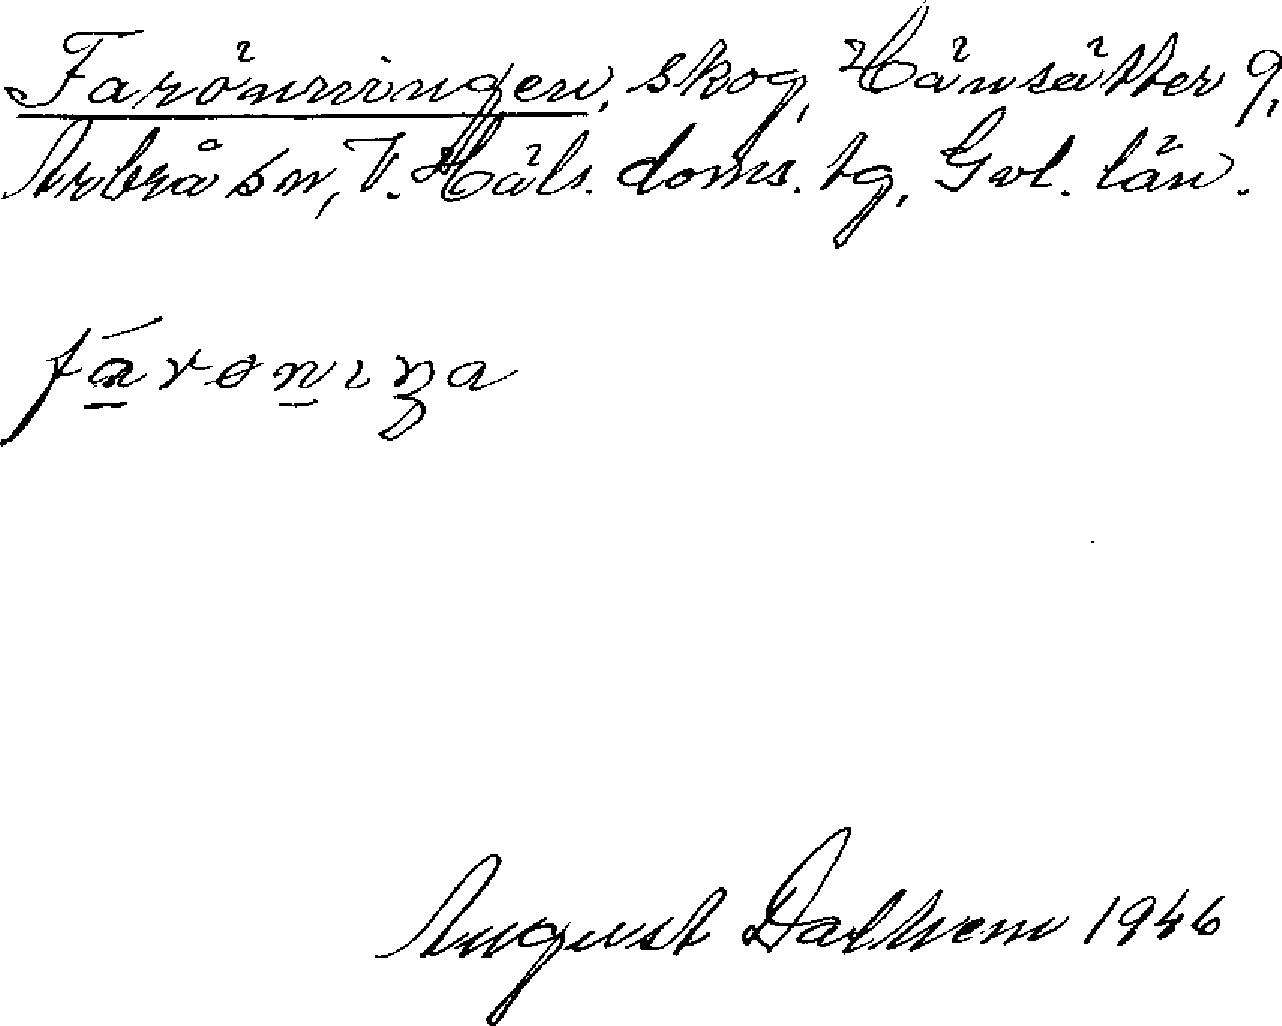 Farönningen, skog, Hänsätter 9,
Arbrå sn, V. Häls. doms. tg, Gvl. län.
August Dalhem 1946